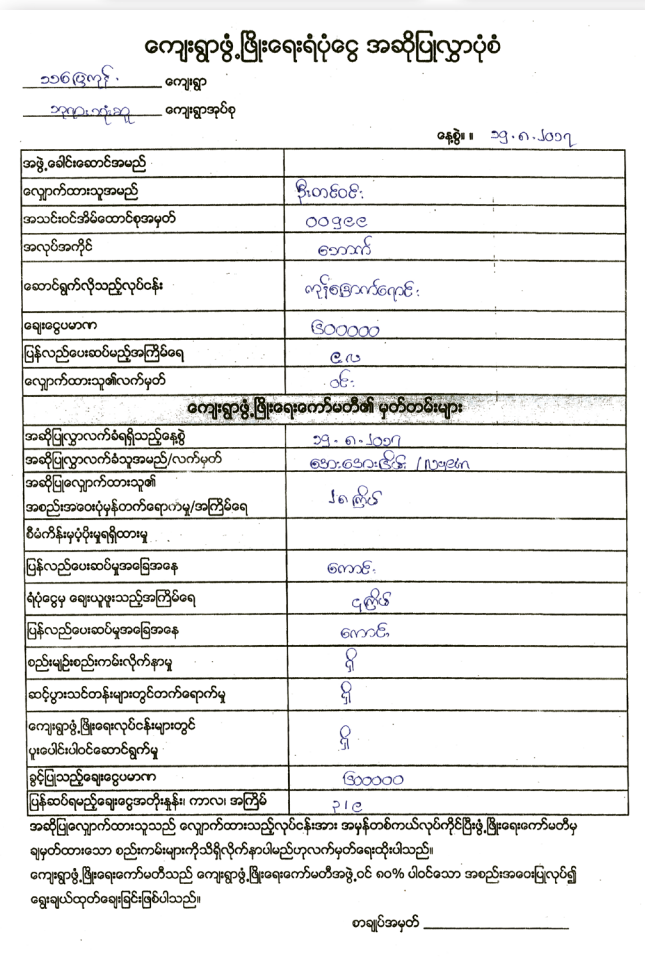 ကျေးရွာဖွံ့ဖြိုးရေးရံပုံငွေ အဆိုပြုလွှာပုံစံ
ကျေးရွာ
ကျေးရွာအုပ်စု
နေ့စွဲ။ ။ ၁၅.၈.၂၀၁၇
အဖွဲ့ခေါင်းဆောင်အမည်
လျှောက်ထားသူအမည် ဦးတင်ဝင်း
အသင်းဝင်အိမ်ထောင်စုအမှတ် ၀၀၅၉၉
အလုပ်အကိုင် တောက်
ဆောင်ရွက်လိုသည့်လုပ်ငန်း ကုန်ခြောက်ရောင်း
ချေးငွေပမာဏ ၆၀၀၀၀၀
ပြန်လည်ပေးဆပ်မည့်အကြိမ်ရေ ၉လ
လျှောက်ထားသူ၏လက်မှတ် ဝင်း
ကျေးရွာဖွံ့ဖြိုးရေးကော်မတီ၏ မှတ်တမ်းများ
အဆိုပြုလွှာလက်ခံရရှိသည့်နေ့စွဲ ၁၅.၈.၂၀၁၇
အဆိုပြုလွှာလက်ခံသူအမည်/လက်မှတ် အေးအေးခိုင်
အဆိုပြုလျှောက်ထားသူ၏
အစည်းအဝေးပုံမှန်တက်ရောက်မှု/အကြိမ်ရေ ၂၈ကြိမ်
စီမံကိန်းမှပံ့ပိုးမှုရရှိထားမှု
ပြန်လည်ပေးဆပ်မှုအခြေအနေ ကောင်း
ရံပုံငွေမှ ချေးယူဖူးသည့်အကြိမ်ရေ ၄ကြိမ်
ပြန်လည်ပေးဆပ်မှုအခြေအနေ ကောင်း
စည်းမျဉ်းစည်းကမ်းလိုက်နာမှု ရှိ
ဆင့်ပွားသင်တန်းများတွင်တက်ရောက်မှု ရှိ
ကျေးရွာဖွံ့ဖြိုးရေးလုပ်ငန်းများတွင်
ပူးပေါင်းပါဝင်ဆောင်ရွက်မှု ရှိ
ခွင့်ပြုသည့်ချေးငွေပမာဏ ၆၀၀၀၀၀
ပြန်ဆပ်ရမည့်ချေးငွေအတိုးနှုန်း၊ ကာလ၊ အကြိမ်
အဆိုပြုလျှောက်ထားသူသည် လျှောက်ထားသည့်လုပ်ငန်းအား အမှန်တစ်ကယ်လုပ်ကိုင်ပြီးဖွံ့ဖြိုးရေးကော်မတီမှ
ချမှတ်ထားသော စည်းကမ်းများကိုသိရှိလိုက်နာပါမည်ဟုလက်မှတ်ရေးထိုးပါသည်။
ကျေးရွာဖွံ့ဖြိုးရေးကော်မတီသည် ကျေးရွာဖွံ့ဖြိုးရေးကော်မတီအဖွဲ့ဝင် ၈၀% ပါဝင်သော အစည်းအဝေးပြုလုပ်၍
ရွေးချယ်ထုတ်ချေးခြင်းဖြစ်ပါသည်။
စာချုပ်အမှတ်